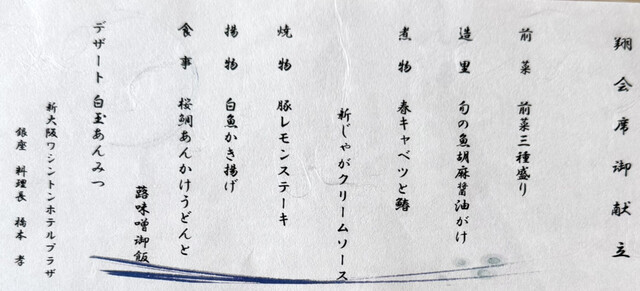 翔会席御献立
前菜 前菜三種盛り
造里 旬の魚胡麻醤油がけ
煮物 春キャベツと鰆
新じゃがクリームソース
焼物 豚レモンステーキ
揚物 白魚かき揚げ
食事 桜鯛あんかけうどんと
蕗味噌御飯
デザート 白玉あんみつ
新大阪ワシントンホテルプラザ
銀座 料理長 橋本 孝